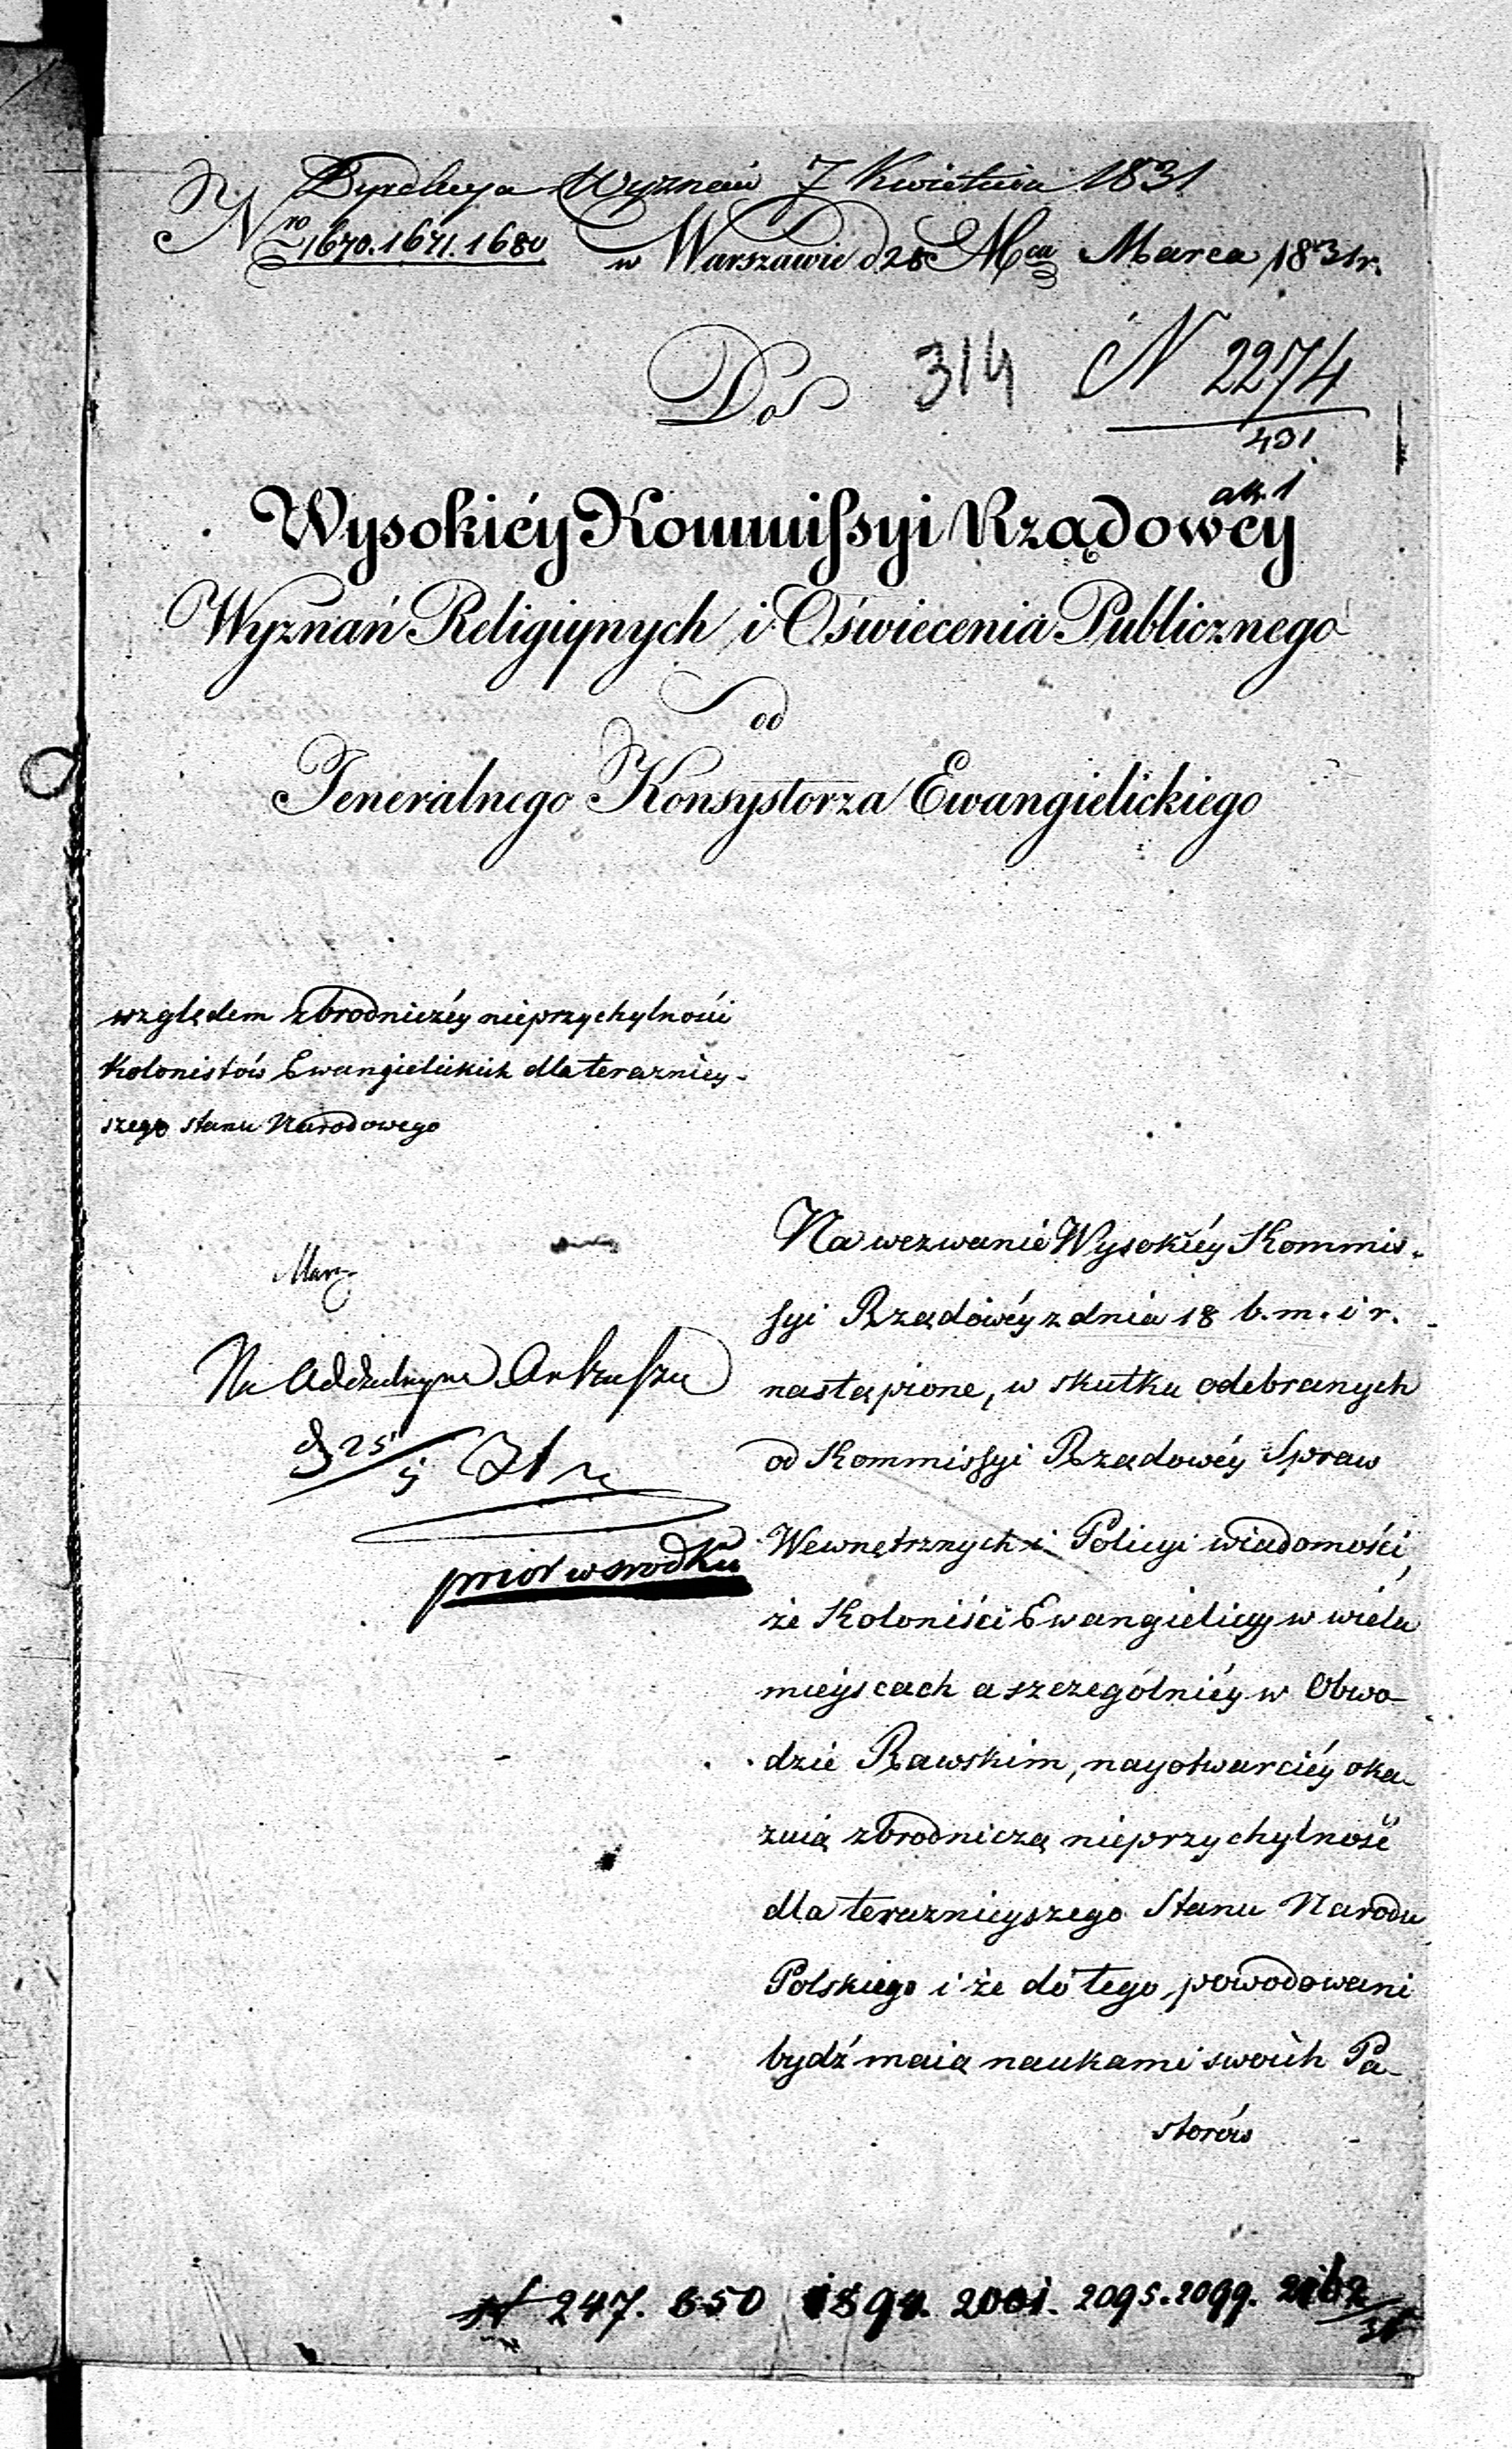 Dyrekcya Wyznań 7 Kwietnia 1831
Nro 1670. 1671. 1680 w Warszawie d 28 Mca Marca 1831 r.
Do 314 N 2274
431
Wysokiéy Kommissyi Rządowéy
Wyznań Religiynych i Oświecenia Publicznego
od
Jeneralnego Konsystorza Ewangielickiego
względem zbrodniczéy nieprzychylności
Kolonistów Ewangielickich dla teraźniey-
szego stanu Narodowego
Na wezwanie Wysokiéy Kommis-
syi Rządowéy z dnia 18 b. m. i r.
nastąpione, w skutku odebranych
od Kommissyi Rządowéy Spraw
Wewnętrznych i Policyi wiadomości,
że Koloniści Ewangieliccy w wielu
mieyscach a szczególniéy w Obwo-
dzie Rawskim, nayotwarciéy oka-
zuią zbrodniczą nieprzychylność
dla teraźnieyszego Stanu Narodu
Polskiego i że do tego powodowani
bydź maią naukami swoich Pa-
storów
Na Oddzielnym Arkuszu
d 25 31 r
prior w srodku
247. 650 1894. 2001. 2095. 2099.